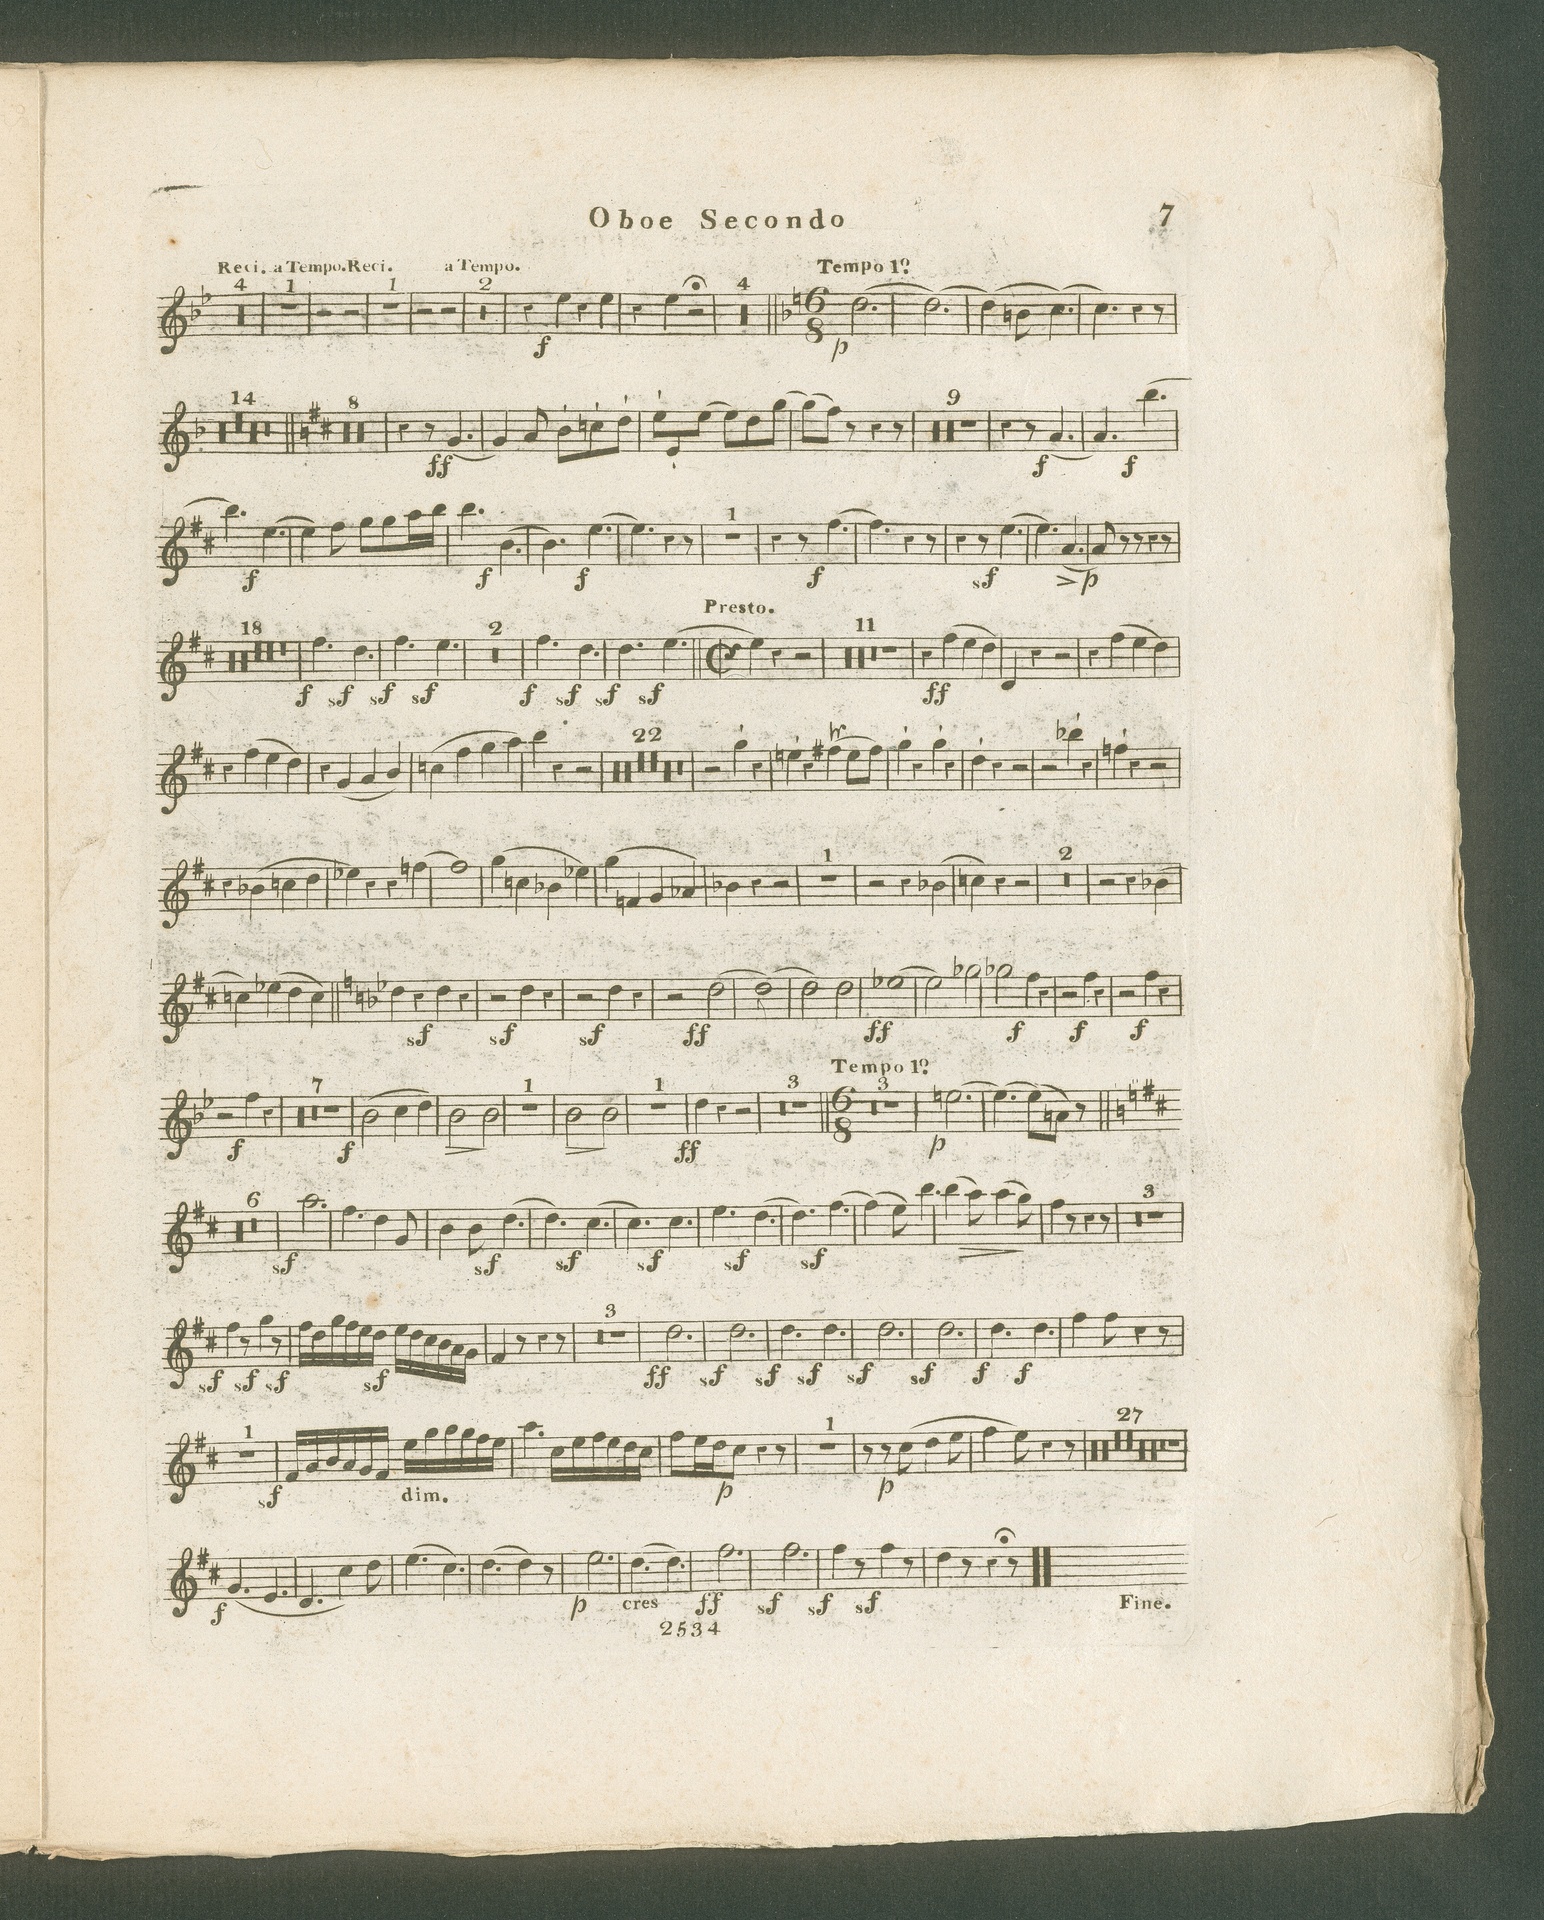 Oboe Secondo 7
Reci. a Tempo. Reci. a Tempo. Tempo 1º
4 1 1 2 4
6
8
f p
14 8 9
ff f f
1
f f f f sf > p
Presto.
18 2 11
f sf sf sf f sf sf sf ff
22
tr
1 2
sf sf sf ff ff f f f
Tempo 1º
7 1 1 3 3
6
8
f f ff p
6 3
sf sf sf sf sf sf
3
sf sf sf sf ff sf sf sf sf sf f f
1 1 27
sf dim. p p
f p cres ff sf sf sf Fine.
2534